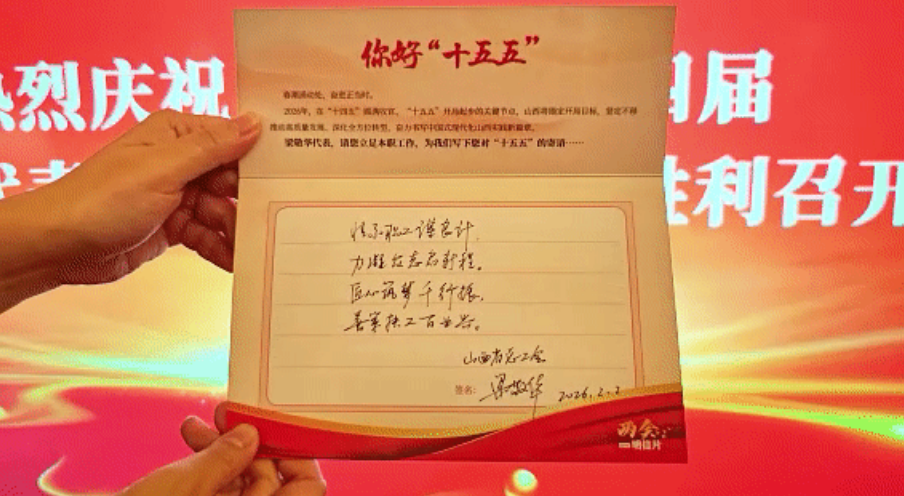 热烈庆祝
四届
胜利召开
你好“十五五”
春潮涌动处，奋进正当时。
2026年，在“十四五”圆满收官、“十五五”开局起步的关键节点，山西将锚定开局目标，坚定不移
推动高质量发展、深化全方位转型，奋力书写中国式现代化山西实践新篇章。
梁敬华代表，请您立足本职工作，为我们写下您对“十五五”的寄语……
情系职工谋良计，
力凝众志启新程。
匠心筑梦千行振，
扶工百业兴。
山西省总工会
签名：梁敬华 2026.2.2
两会
明信片